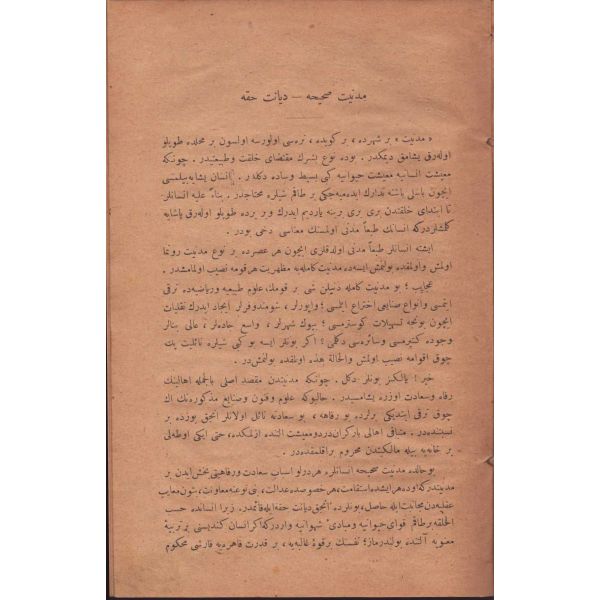 مدنیت صحیحه — دیانت حقه
« مدنیت » بر شهرده ، بر کویده ، نره‌سی اولورسه اولسون بر محلده طوپلو
اوله‌رق یشامق دیمکدر . بوده نوع بشرک مقتضای خلقت و طبیعتیدر . چونکه
معیشت انسانیه معیشت حیوانیه کبی بسیط و ساده دکلدر . انسان یشایه‌بیلمسی
ایچون باشلی باشنه تدارک ایده‌میه‌جکی بر طاقم شیلره محتاجدر . بناءً علیه انسانلر
تا ابتدای خلقتدن بری بری برینه یاردیم ایدرک و بر یرده طوپلو اوله‌رق یاشایه
کلمشلردرکه انسانک طبعاً مدنی اولمسنک معناسی دخی بودر .
ایشته انسانلر طبعاً مدنی اولدقلری ایچون هر عصرده بر نوع مدنیت رونما
اولمش و اولمقده بولنمش ایسه‌ده مدنیت کامله‌یه مظهریت هر قومه نصیب اولمامشدر .
عجایب ! بو مدنیت کامله دنیلن شی بر قومک ، علوم طبیعیه و ریاضیه‌ده ترقی
ایتمسی و انواع صنایعی اختراع ایتمسی ؛ واپورلر ، شومندوفرلر ایجاد ایدرک نقلیات
ایچون بونجه تسهیلات کوسترمسی ؛ بیوک شهرلر ، واسع جاده‌لر ، عالی بنالر
وجوده کتیرمسی و سائره‌سی دکلمی ؟ اکر بونلر ایسه بو کبی شیلره نائلیت پک
چوق اقوامه نصیب اولمش والحالة هذه اولمقده بولنمش‌در .
خیر ! یالکز بونلر دکل . چونکه مدنیتدن مقصد اصلی بالجمله اهالینک
رفاه و سعادت اوزره یشامسیدر . حالبوکه علوم و فنون و صنایع مذکوره‌نک اک
چوق ترقی ایتدیکی یرلرده بو رفاهه ، بو سعادته نائل اولانلر انجق یوزده بر
نسبتنده‌در . متباقی اهالی بارکران درد و معیشت آلتنده ازلمکده ، حتی ایکی اوطه‌لی
بر خانه‌یه بیله مالکیتدن محروم براقلمقده‌در .
بو حالده مدنیت صحیحه انسانلره هر درلو اسباب سعادت و رفاهیتی بخش ایدن بر
مدنیتدرکه اوده هر ایشده استقامت ، هر خصوصده عدالت ، بنی نوعنه معاونت ، شئون معایب
عقلیه‌دن مجانبت ایله حاصل ، بونلرده انجق دیانت حقه ایله قائمدر . زیرا انسانده حسب
الخلقه بر طاقم قوای حیوانیه و مبادی شهوانیه واردرکه اکر انسان کندیسنی بر تربیهٔ
معنویه آلتنده بولندرماز ؛ نفسنک بر قوهٔ غالبه‌یه ، بر قدرت قاهره‌یه قارشی محکوم